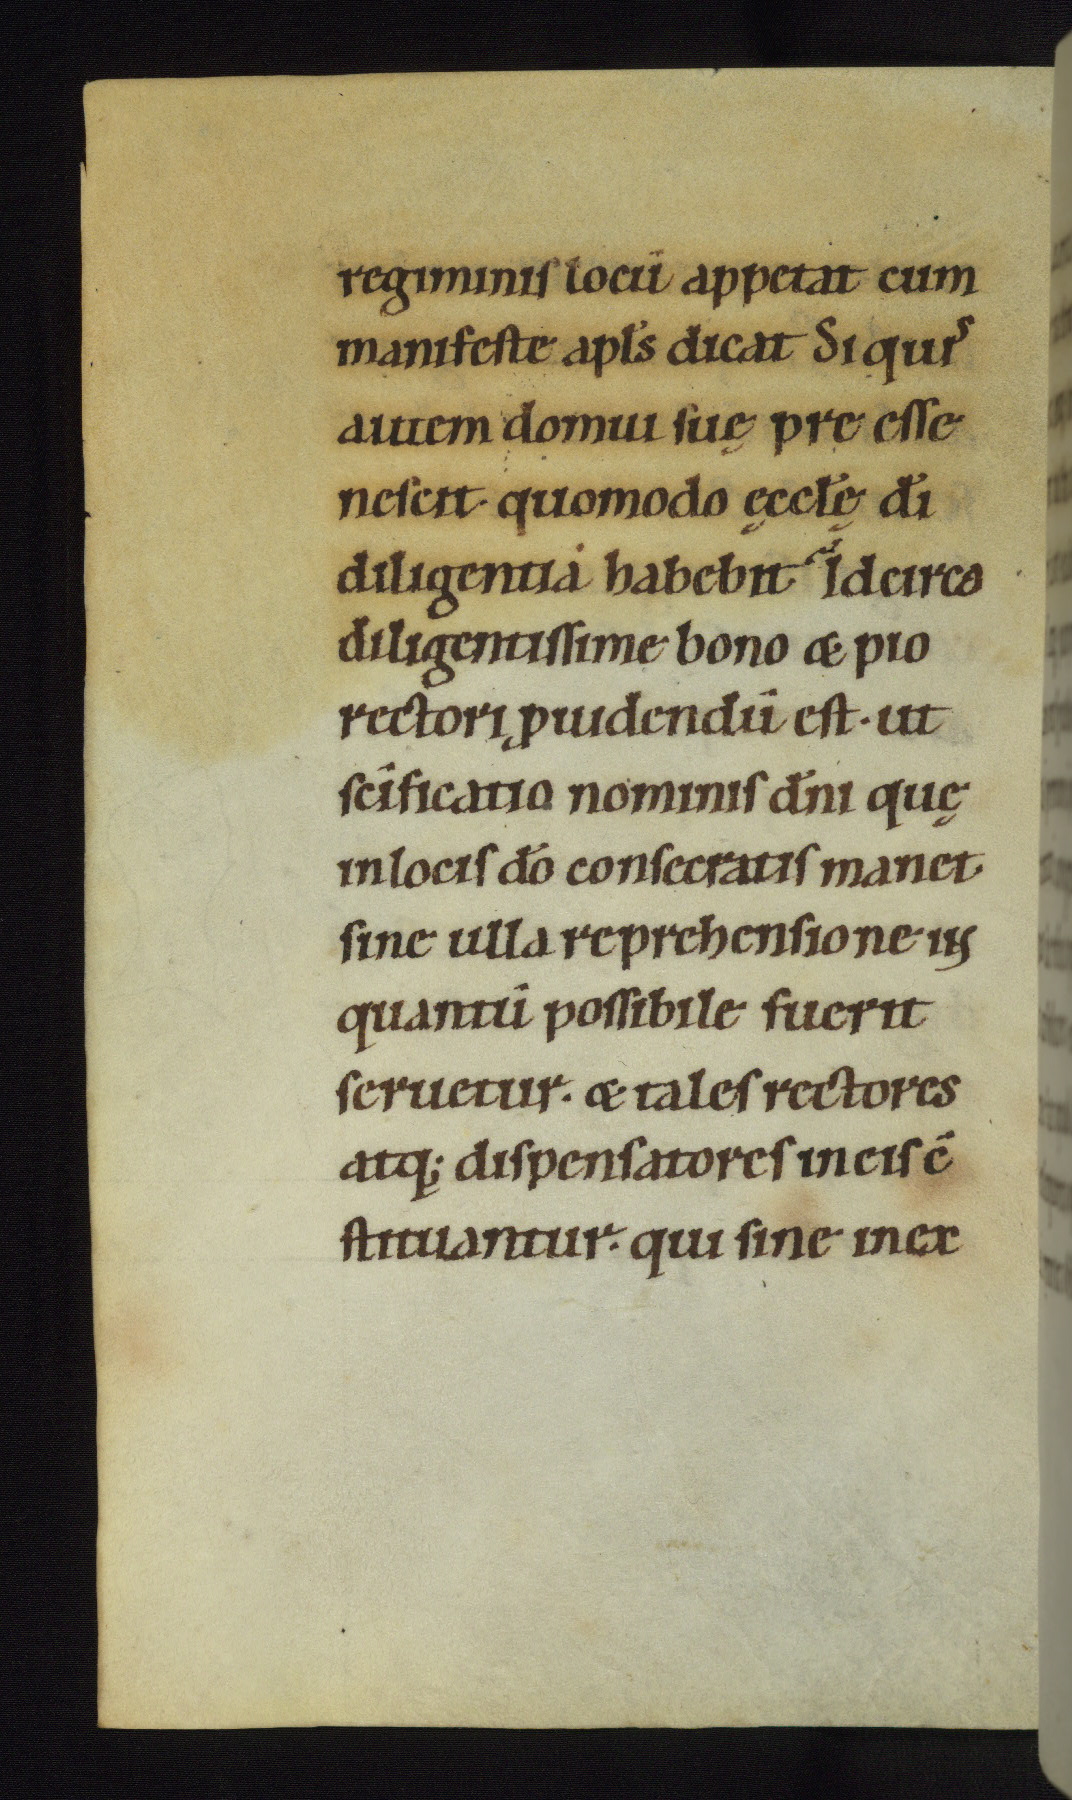 regiminiſ locū appetat cum
manifeſte apl̄s dicat Si quiˢ
autem domui ſuę pre eſſe
neſcit· quomodo ęccl̄ę d̄i
diligentiā habebit? Idcirco
diligentiſſime bono & pio
rectori ꝓuidendū eſt· ut
ſcīficatio nominiſ d̄ni quę
inlociſ d̄o conſecratiſ manet·
ſine ulla reprehenſione iɳ
quantū poſſibile fuerit
ſeruetur· & taleſ rectores
atq; diſpenſatoreſ in eiſ ē
ſtituantur· qui ſine inex